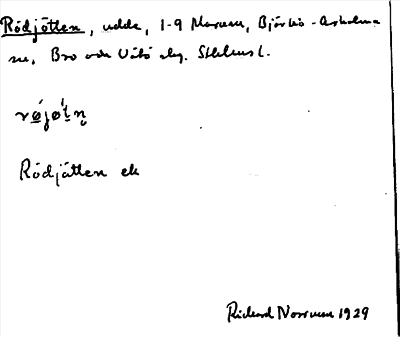 Rödjätten, udde, 1-9 Marum, Björkö-Arholma
sn, Bro och Vätö skg. Sthlms l.
Rödjätten ek
Rickard Norrman 1929